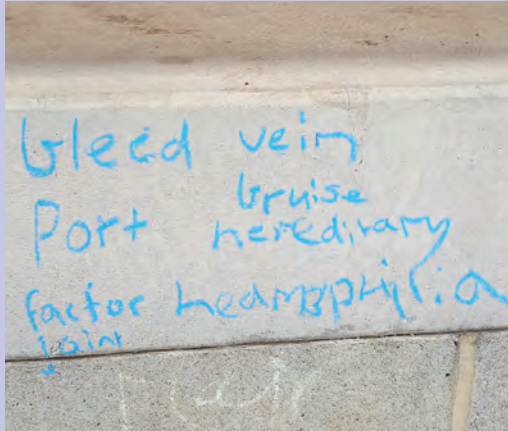 bleed vein
bruise
Port hereditary
factor heamophilia
joint